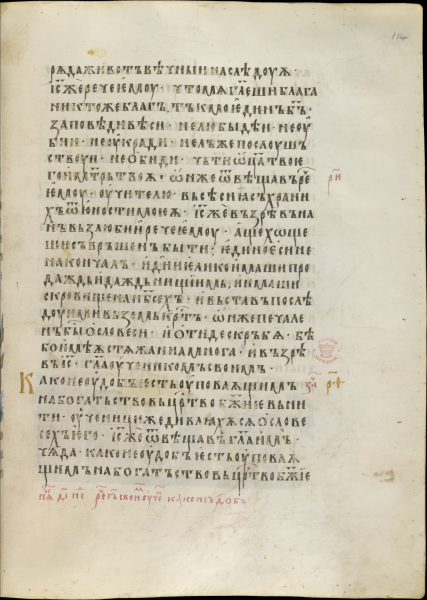 рѧ да животъ вѣчныи наслѣдоуѫ
і҃с же рече ѥмоу · что мѧ гл҃еши блага
никтоже благъ тъкмо ѥдинъ б҃ъ ·
заповѣди вѣси · не любы дѣи · не оу
бии · не оукради · не лъже послоушь
ствоуи · не обиди · чьти ѿца твоѥ
го и м҃трь твоѫ · ѡн же ѿвѣщавъ ре҃
ѥмоу · оучителю · вьсѣ си ѧ съхрани
хъ ѿ юности моѥѧ · і҃с же възрѣвъ на
нь възлюби и рече ѥмоу · аще хоще
ши съвръшенъ быти · ѥдиного ѥси не
наконьчалъ · иди ѥлико имаши про
даждь и даждь нищимъ и имаши
съкровище на нб҃сехъ · и въставъ послѣ
доуи ми възьмъ кр҃тъ · ѡн же печале
нъ бы о словеси · и отиде скръбѧ · бѣ
бо имѣѧ стѧжаниа многа · и възрѣ
въ і҃с · гл҃а оученикомъ своимъ ·
Како неоудобь ѥсть оуповаѫщимъ
на богатьство въ цр҃тво бж҃иѥ въни
ти · оученици же дивлѣахѫ сѧ о слове
сехъ ѥго · і҃с же ѿвѣщавъ гл҃а имъ ·
чѧда · како неоудобь ѥсть оуповаѫ
щимъ на богатьство въ цр҃тво бж҃иѥ